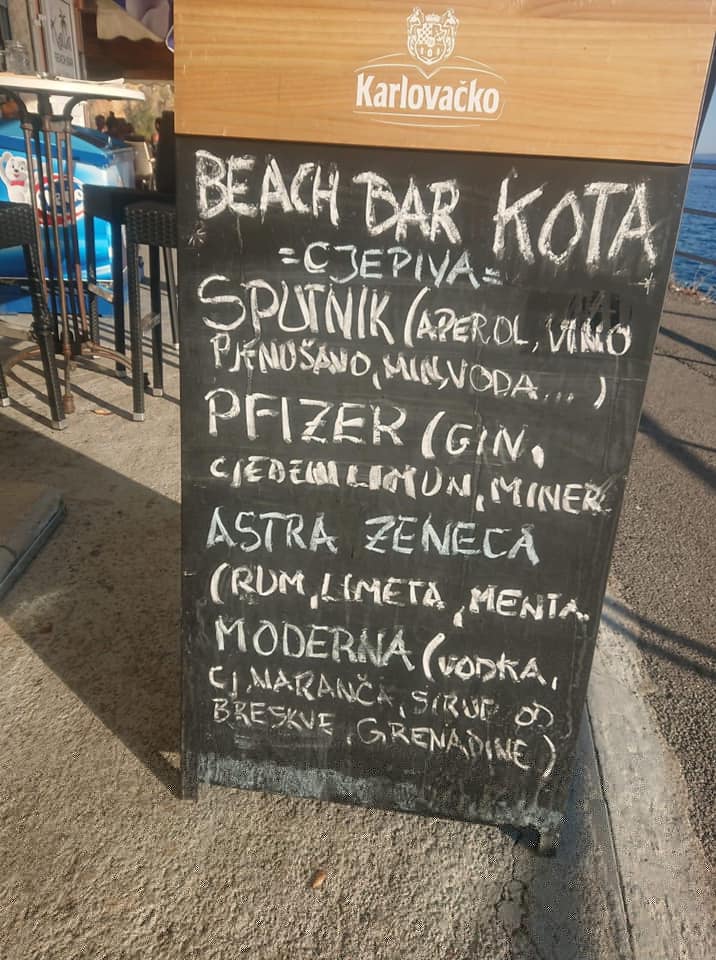 Karlovačko
BEACH BAR KOTA
=CJEPIVA=
SPUTNIK (APEROL, VINO
PJENUŠAVO, MIN, VODA... )
PFIZER (GIN,
CJEĐENI LIMUN, MINER.
ASTRA ZENECA
(RUM, LIMETA, MENTA
MODERNA (VODKA,
CJ, NARANČA, SIRUP OD
BRESKVE, GRENADINE)
BEACH BAR